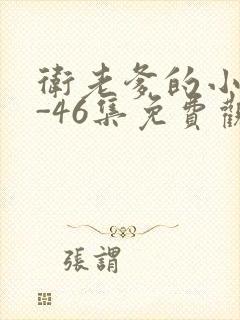 衛老爹的小
-46集免費觀
張謂